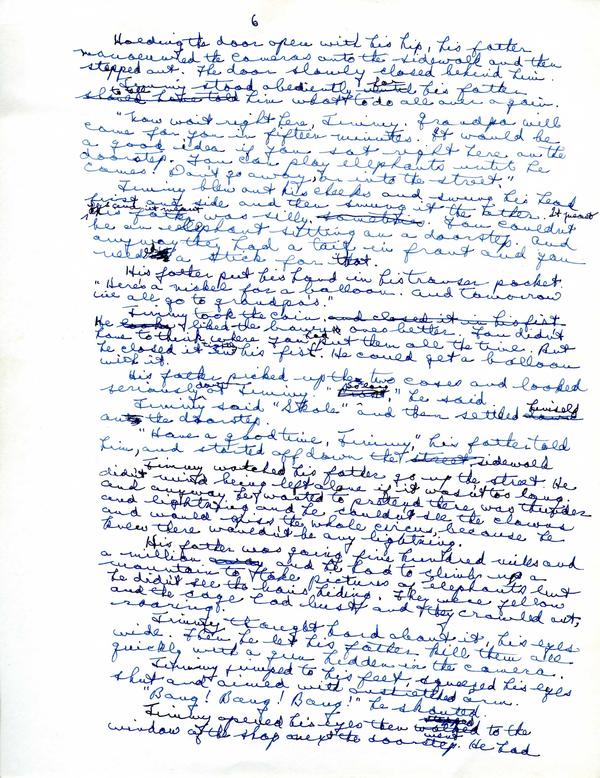 6
Holding the door open with his hip, his father
manoeuvred the cameras onto the sidewalk and then
stepped out. The door slowly closed behind him.
Jimmy stood obediently for his father
to tell him what to do all over again.
"Now wait right here, Jimmy. Grandpa will
come for you in fifteen minutes. It would be
a good idea if you sat right here on the
doorstep. You can play elephants until he
comes! Don't go away, or into the street."
Jimmy blew out his cheeks and swung his head
first one side and then swung it the other. It meant
his father was silly, You couldn't
be an elephant sitting on a doorstep. And
anyway they had a tail in front and you
need a stick for that.
His father put his hand in his trouser pocket.
"Here's a nickel for a balloon. And tomorrow
we all go to grandpa's."
Jimmy took the coin. and closed it in his fist.
He liked the brown ones better. You didn't
have to think where you put them all the time. But
he closed it in his fist. He could get a balloon
with it.
His father picked up the two cases and looked
seriously at Jimmy. " he said
Jimmy said "Skole" and then settled himself
on the doorstep.
"Have a good time, Jimmy," his father told
him, and started off down the street sidewalk
Jimmy watched his father go up the street. He
didn't mind being left alone if it wasn't too long.
and anyway he wanted to pretend there was thunder
and lightning and he couldn't see the clowns
and would miss the whole circus because he
knew there wouldn't be any lightning.
His father was going five hundred miles and
a million and he had to climb up a
mountain to take pictures of elephants but
he didn't see the lions hiding. They were yellow
and the cage had burst and they crawled out,
roaring.
Jimmy thought hard about it, his eyes
wide. Then he let his father kill them all
quickly with a gun hidden in the camera.
Jimmy jumped to his feet, squeezed his eyes
shut and aimed with outstretched arm.
"Bang! Bang! Bang!" he shouted.
Jimmy opened his eyes then went to the
window of the shop next the doorstep. He had